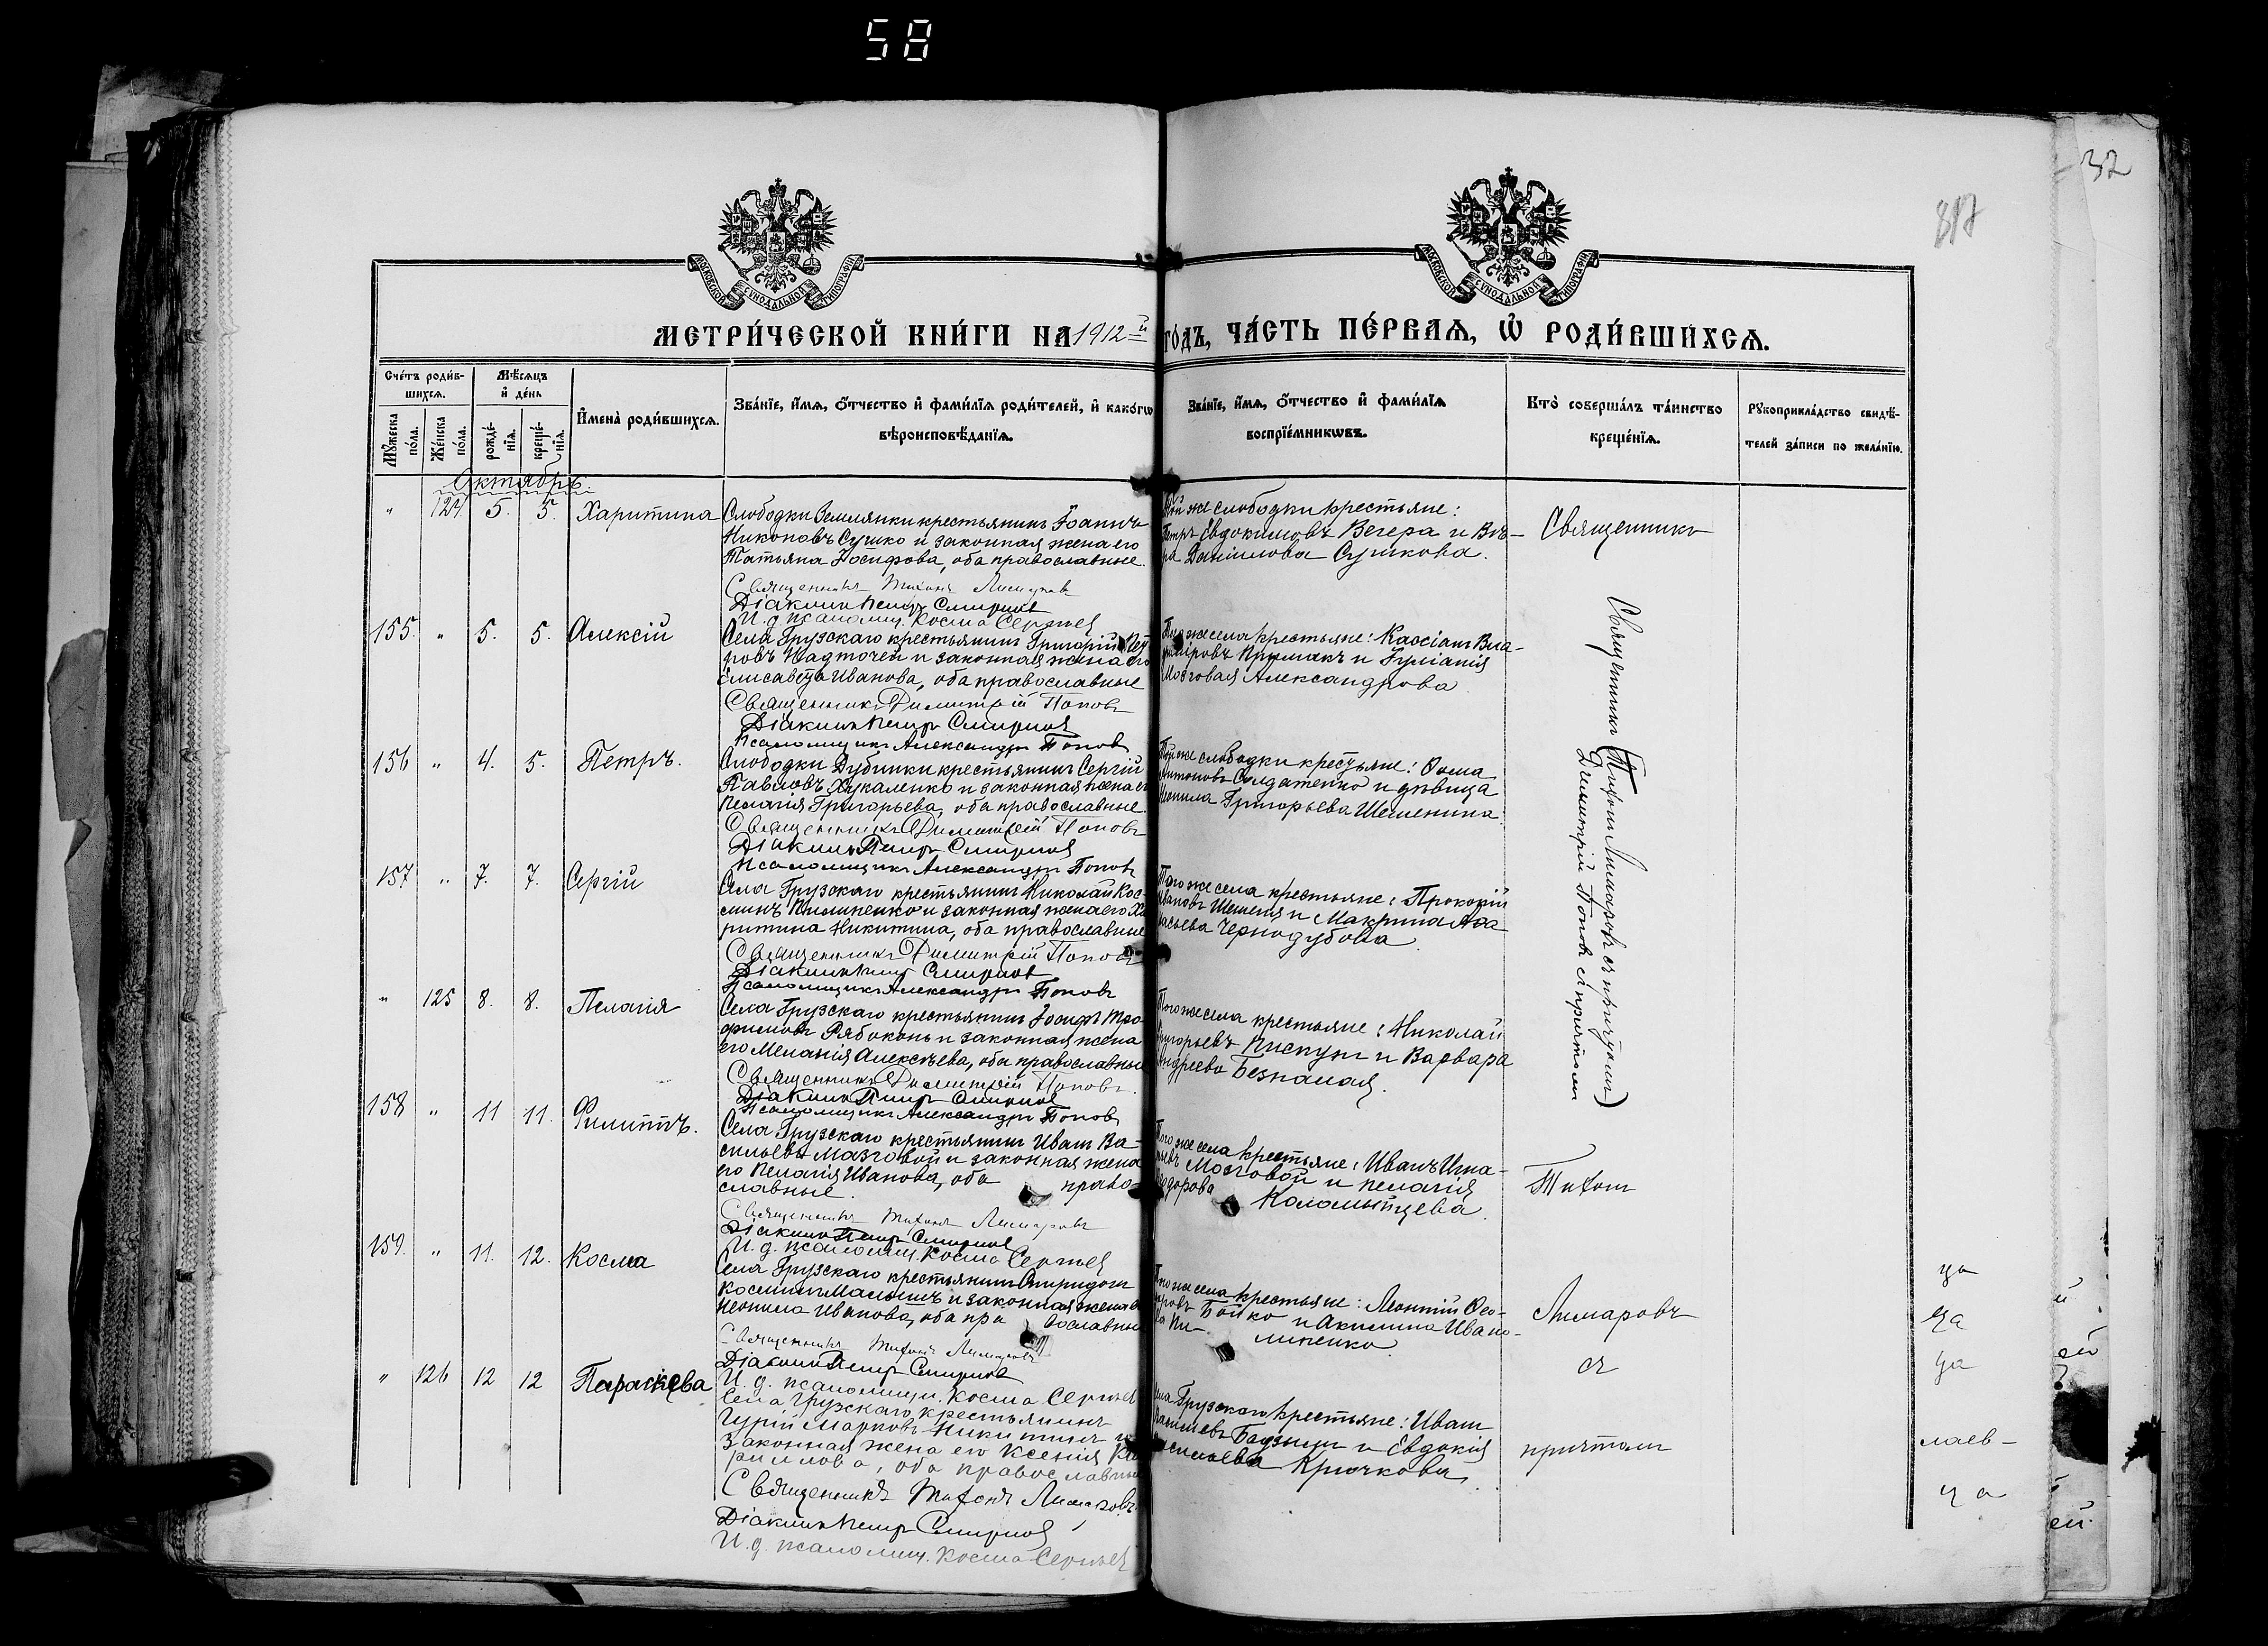 58
32
817
МОСКОВСКОЙ СѴНОДАЛЬНОЙ ТИПОГРАФІИ
МОСКОВСКОЙ СѴНОДАЛЬНОЙ ТИПОГРАФІИ
МЕТРИ́ЧЕСКОЙ КНИ́ГИ НА 1912й ГО́ДЪ, ЧА́СТЬ ПЕ́РВАѦ, Ѡ҆ РОДИ́ВШИХСѦ.
Сче́тъ роди́в-
шихсѧ.
Мѣ́сѧцъ
и҆ де́нь
Мꙋ́жеска по́ла.
Же́нска по́ла.
рожде́-нїѧ.
креще́-нїѧ.
И҆мена̀ роди́вшихсѧ.
Зва́нїе, и҆́мѧ, ѻ҆́тчество и҆ фами́лїѧ роди́телей, и҆ како́гѡ
вѣроисповѣ́данїѧ.
Зва́нїе, и҆́мѧ, ѻ҆́тчество и҆ фами́лїѧ
воспрїе́мникѡвъ.
Кто̀ соверша́лъ та́инство
креще́нїѧ.
Рꙋкоприкла́дство свидѣ́-
телей за́писи по жела́нїю.
Октябрь.
" 124. 5. 5. Харитина
Слободки Землянки крестьянинъ Іоаннъ
Никоновъ Сушко и законная жена его
Татьяна Іосифова, оба православные.
Священникъ Тихонъ Лимаровъ
Діаконъ Петръ Смирновъ
И. д. псаломщ. Косма Сергѣев
той же слободки крестьяне:
Петръ Евдокимовъ Вечера и Вѣ-
ра Даніилова Сушкова.
Священникъ
155. " 5. 5. Алексій
Села Грузскаго крестьянинъ Григорій Пет
ровъ Надточей и законная жена его
Елисавета Иванова, оба православные
Священникъ Димитрій Поповъ
Діаконъ Петръ Смирновъ
Псаломщикъ Александръ Поповъ
Того же села крестьяне: Кассіанъ Вла-
диміровъ Примакъ и Іуліанія
Мозговая Александрова
156 " 4. 5. Петръ.
Слободки Дубинки крестьянинъ Сергій
Павловъ Жукаленко и законная жена его
Пелагія Григорьева, оба православные
Священникъ Димитрій Поповъ
Діаконъ Петръ Смирновъ
Псаломщикъ Александръ Поповъ
Той же слободки крестьяне: Ѳома
Антоновъ Солдатенко и дѣвица
Григорьева Шеменина.
157 " 7. 7. Сергій
Села Грузскаго крестьянинъ Николай Кос-
минъ Пилипенко и законная жена его Ха
ритина Никитина, оба православные
Священникъ Димитрій Поповъ
Діаконъ Петръ Смирновъ
Псаломщикъ Александръ Поповъ
Того же села крестьяне: Прокопій
Ивановъ Шеменя и Макрина Аѳа
насьева Чернодубова
" 125 8. 8. Пелагія
Села Грузскаго крестьянинъ Іосифъ Тро-
фимовъ Рябоконь и законная жена
его Меланія Алексѣева, оба православные
Священникъ Димитрій Поповъ.
Діаконъ Петръ Смирновъ
Псаломщикъ Александръ Поповъ
Того же села крестьяне: Николай
Григорьевъ Пискунъ и Варвара
Андреева Безналая.
158 " 11 11. Филиппъ.
Села Грузскаго крестьянинъ Иванъ Ва-
сильевъ Мазговой и законная жена
его Пелагія Иванова, оба право-
славные.
Священникъ Тихонъ Лимаровъ
Діаконъ Петръ Смирновъ
И. д. псаломщ. Косма Сергѣев
Того же села крестьяне: Иванъ Игна-
тьевъ Мозговой и Пелагія
Ѳедорова Коломытцева.
159. " 11. 12. Косма
Села Грузскаго крестьянинъ Спиридонъ
Косминъ Малышъ и законная жена его
Неонила Иванова, оба православные
Священникъ Тихонъ Лимаровъ
Діаконъ Петръ Смирновъ
И. д. псаломщ. Косма Сергѣев
Того же села крестьяне: Леонтій Ѳео-
доровъ Бойко и Акилина Ивано-
ва Пи-липенко
" 126 12 12 Параскева
Села Грузскаго крестьянинъ
Гурій Марковъ Никитинъ и
законная жена его Ксенія Ка
риллова, оба православные
Священникъ Тихонъ Лимаровъ.
Діаконъ Петръ Смирновъ
И. д. псаломщ. Косма Сергѣев
Села Грузскаго крестьяне: Иванъ
и Евдокія
Васильева Крючкова
Священники (Тихонъ Лимаровъ съ причтомъ)
Димитрій Поповъ съ причтомъ
Тихонъ
Лимаровъ
съ
причтомъ
ца
ца
ца
лаев-
ца
й
ей
ей